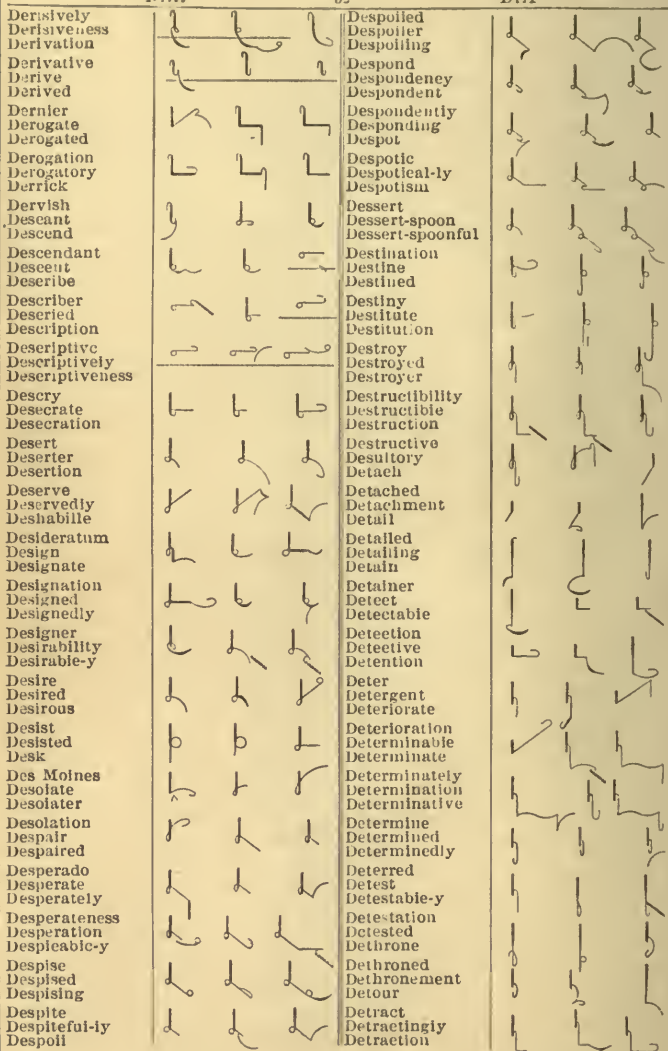 Derisively
Derisiveness
Derivation
Derivative
Derive
Derived
Dernier
Derogate
Derogated
Derogation
Derogatory
Derrick
Dervish
Descant
Descend
Descendant
Descent
Describe
Describer
Descried
Description
Descriptive
Descriptively
Descriptiveness
Descry
Desecrate
Desecration
Desert
Deserter
Desertion
Deserve
Deservedly
Deshabille
Desideratum
Design
Designate
Designation
Designed
Designedly
Designer
Desirability
Desirable-y
Desire
Desired
Desirous
Desist
Desisted
Desk
Des Moines
Desolate
Desolater
Desolation
Despair
Despaired
Desperado
Desperate
Desperately
Desperateness
Desperation
Despicable-y
Despise
Despised
Despising
Despite
Despiteful-ly
Despoil
Despoiled
Despoiler
Despoiling
Despond
Despondency
Despondent
Despondently
Desponding
Despot
Despotic
Despotical-ly
Despotism
Dessert
Dessert-spoon
Dessert-spoonful
Destination
Destine
Destined
Destiny
Destitute
Destitution
Destroy
Destroyed
Destroyer
Destructibility
Destructible
Destruction
Destructive
Desultory
Detach
Detached
Detachment
Detail
Detailed
Detailing
Detain
Detainer
Detect
Detectable
Detection
Detective
Detention
Deter
Detergent
Deteriorate
Deterioration
Determinable
Determinate
Determinately
Determination
Determinative
Determine
Determined
Determinedly
Deterred
Detest
Detestable-y
Detestation
Detested
Dethrone
Dethroned
Dethronement
Detour
Detract
Detractingly
Detraction